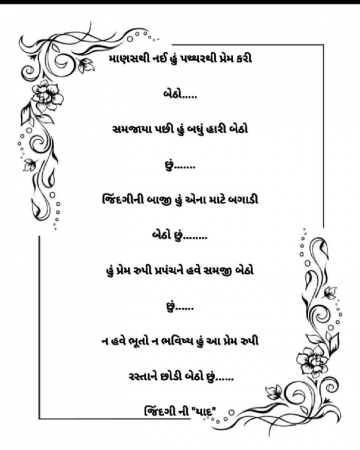 માણસથી નઈ હું પથ્થરથી પ્રેમ કરી
બેઠો.....
સમજાયા પછી હું બધું હારી બેઠો
છું.......
જિંદગીની બાજી હું એના માટે બગાડી
બેઠો છું........
હું પ્રેમ રુપી પ્રપંચને હવે સમજી બેઠો
છું......
ન હવે ભૂતો ન ભવિષ્ય હું આ પ્રેમ રુપી
રસ્તાને છોડી બેઠો છું......
જિંદગી ની "યાદ"